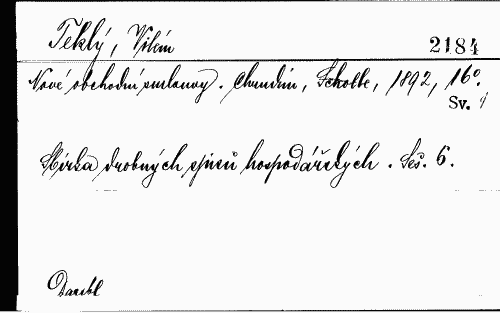 Teklý, Vilém
2184
Nové obchodní smlouvy. Chrudim, Scholle, 1892, 16°.
Sv. 1
Sbírka drobných spisů hospodářských. Seš. 6.